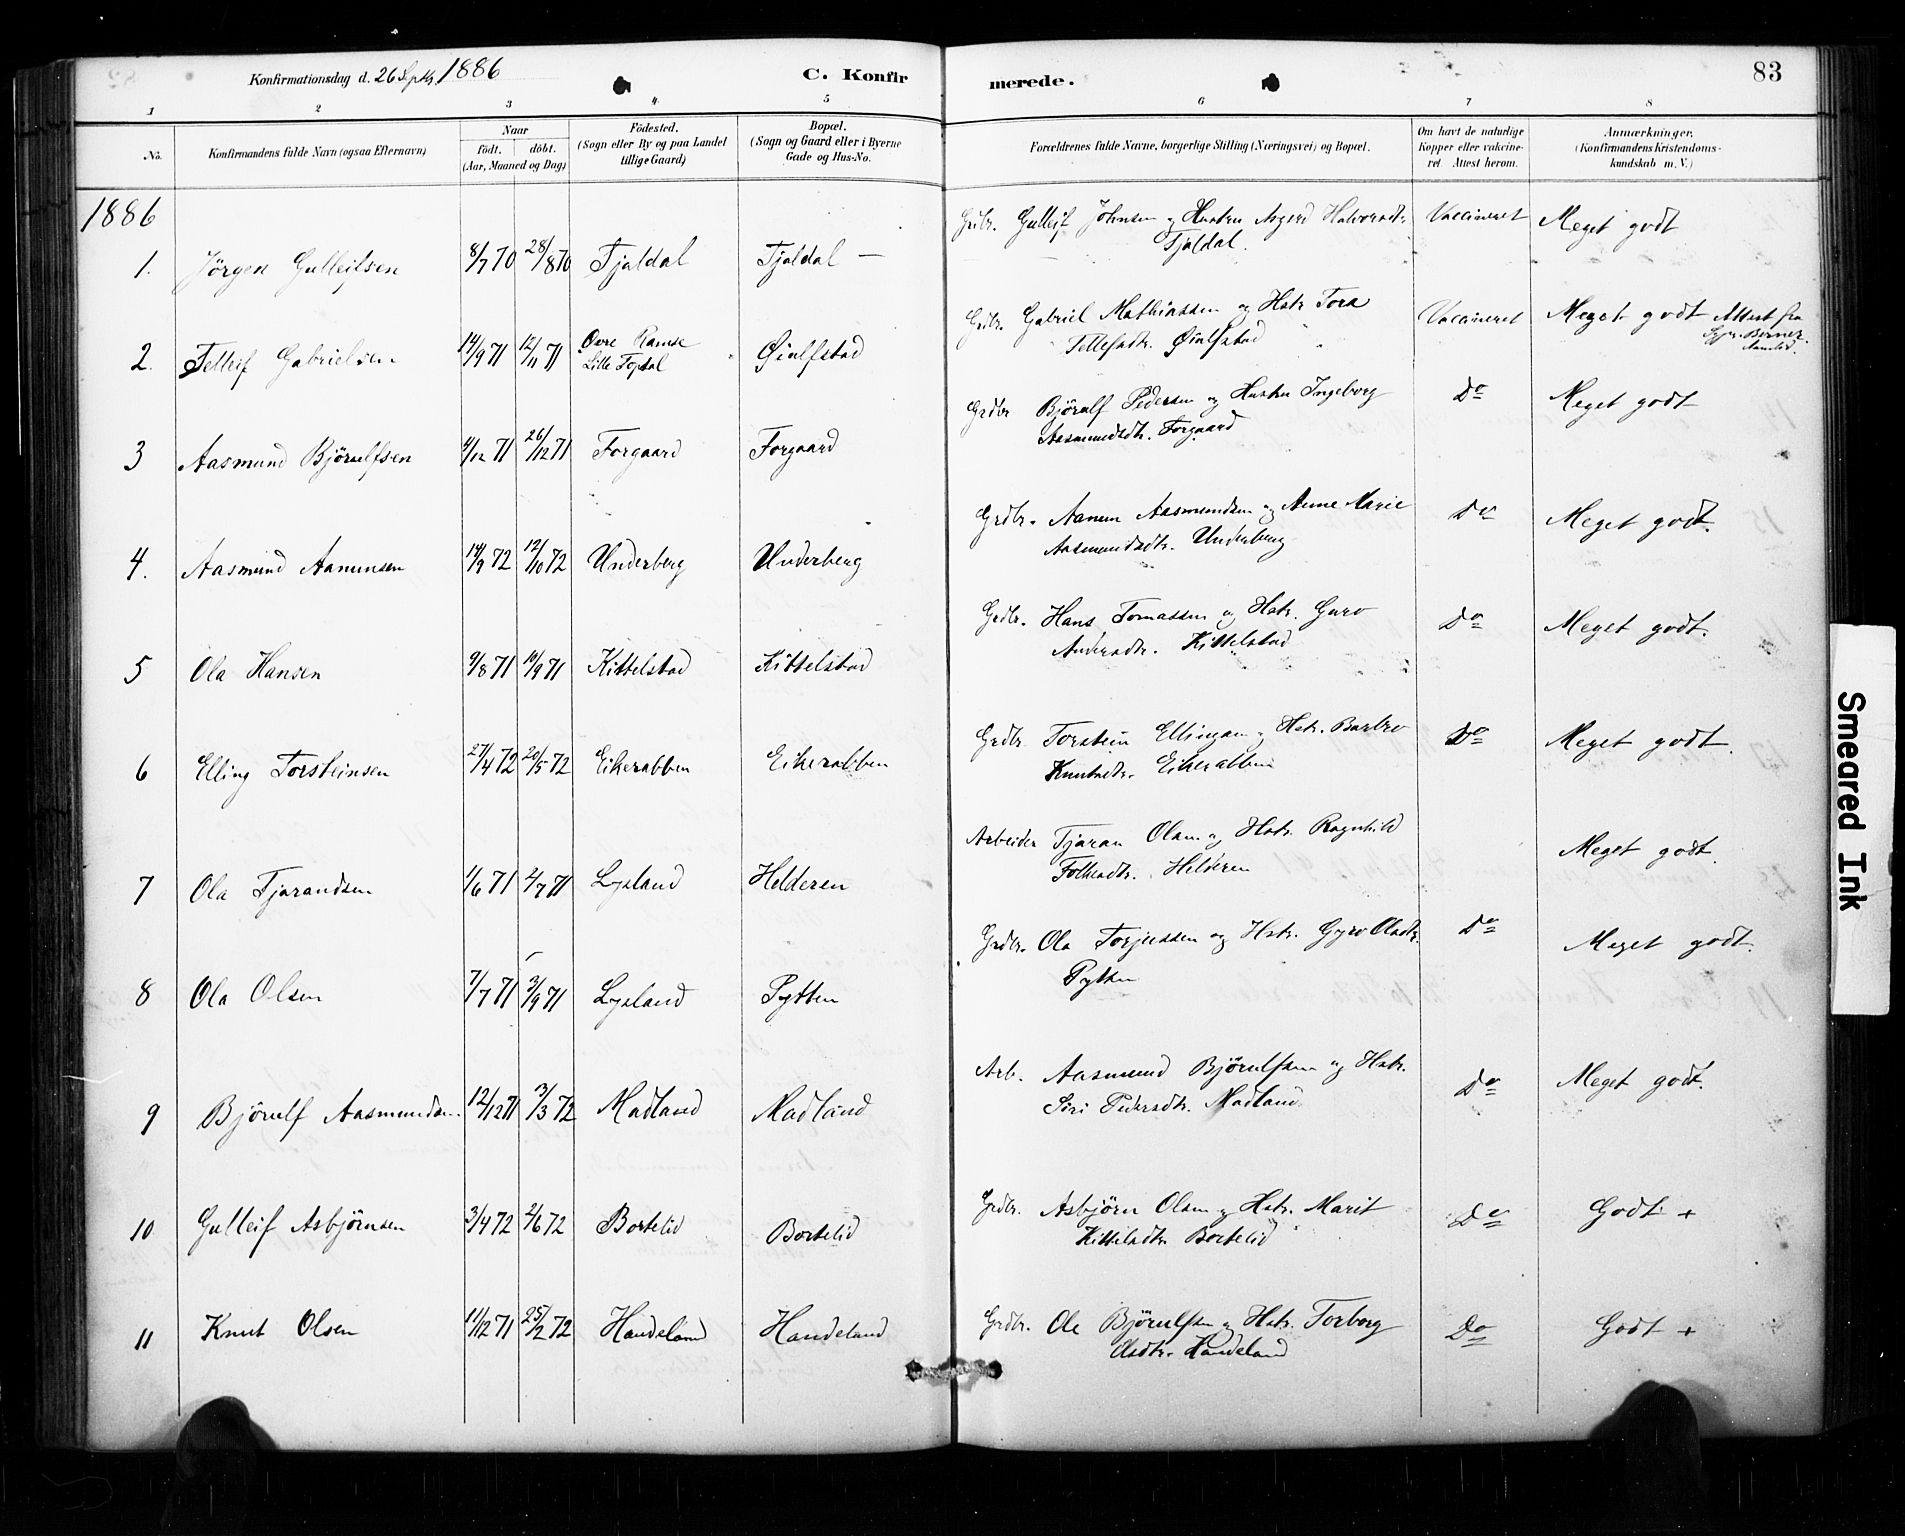 Konfirmationsdag d. 26 Septb. 1886
C. Konfirmerede.
83
1 2 3 4 5 6 7 8
No.
Konfirmandens fulde Navn (ogsaa Efternavn)
Naar
født. døbt.
(Aar, Maaned og Dag)
Fødested.
(Sogn eller By og paa Landet
tillige Gaard)
Bopæl.
(Sogn og Gaard eller i Byerne
Gade og Hus-No.
Forældrenes fulde Navne, borgerlige Stilling (Næringsvei) og Bopæl.
Om havt de naturlige
Kopper eller vakcine-
ret Attest herom.
Anmærkninger.
(Konfirmandens Kristendoms-
kundskab m. V.)
1886
1. Jørgen Gulleifsen 8/7 70 28/8 70 Tjaldal Tjaldal —
Grdbr. Gulleif Johnsen og Hustru Asgerd Halvorsdtr.
Tjaldal.
Vaccineret Meget godt
2. Telleif Gabrielsen 14/9 71 12/11 71 Øvre Ramse
Lille Topdal Øiulfstad
Grdbr. Gabriel Mathiassen og Hstr. Tora
Tellefsdtr. Øiulfstad
Vaccineret Meget godt Attest fra
3 Aasmund Bjørulfsen 4/12 71 26/12 71 Forgaard Forgaard
Grdbr Bjørulf Pedersen og Hustru Ingeborg
Aasmundsdtr. Forgaard
Do Meget godt
4. Aasmund Aanunsen 14/9 72 12/10 72 Underberg Underberg
Grdbr. Aanun Aasmundsen og Anne Marie
Aasmundsdtr. Underberg
Do Meget godt.
5 Ola Hansen 9/8 71 19/9 71 Kittelstad Kittelstad
Grdbr. Hans Tomassen og Hstr. Guro
Andersdtr. Kittelstad
Do Meget godt.
6 Elling Torsteinsen 27/4 72 20/5 72 Eikerabben Eikerabben
Grdbr. Torstein Ellingsen og Hstr. Barbro
Knutsdtr. Eikerabben
Do Meget godt.
7 Ola Tjarandsen 1/6 71 2/7 71 Lysland Helderen
Arbeider Tjaran Olsen og Hstr. Ragnhild
Folkesdtr. Helderen
Meget godt.
8 Ola Olsen 7/7 71 3/9 71 Lysland Pytten
Grdbr. Ola Torjussen og Hstr. Gyro Olsdtr.
Pytten
Do Meget godt.
9 Bjørulf Aasmundsen. 12/12 71 3/3 72 Madland Madland
Arb. Aasmund Bjørulfsen og Hstr.
Siri Pedersdtr. Madland
Do Meget godt.
10 Gulleif Asbjørnsen 3/4 72 2/6 72 Bortelid Bortelid
Grdbr. Asbjørn Olsen og Hstr. Marit
Kittelsdtr. Bortelid
Do Godt +
11 Knut Olsen 11/12 71 25/2 72 Handeland Handeland
Grdbr. Ole Bjørulfsen og Hstr. Torborg
Olsdtr. Handeland
Do Godt +
Smeared Ink